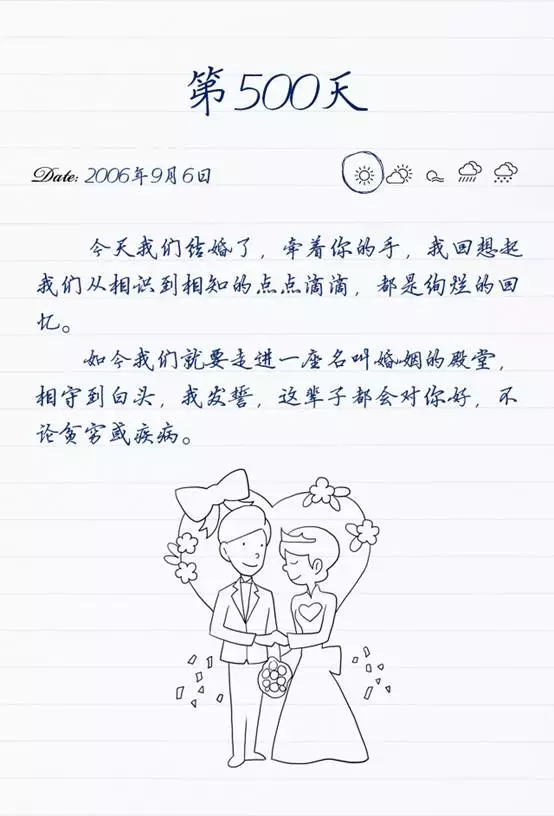 第500天
Date: 2006年9月6日
今天我们结婚了，牵着你的手，我回想起
我们从相识到相知的点点滴滴，都是绚烂的回
忆。
如今我们就要走进一座名叫婚姻的殿堂，
相守到白头，我发誓，这辈子都会对你好，不
论贫穷或疾病。